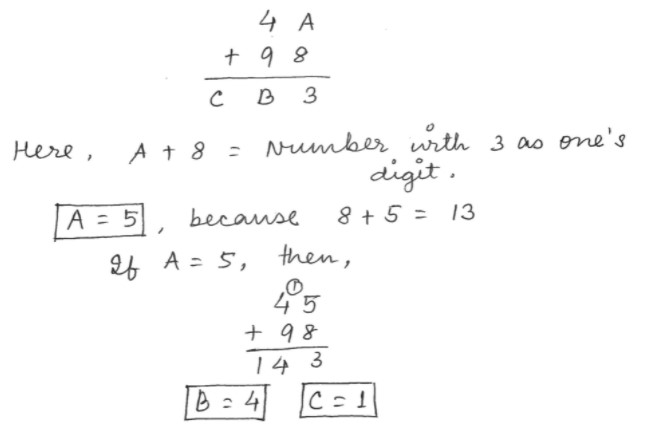 4 A
+ 9 8
C B 3
Here, A + 8 = Number with 3 as one's
digit.
A = 5, because 8 + 5 = 13
If A = 5, then,
1
4 5
+ 9 8
1 4 3
B = 4 C = 1